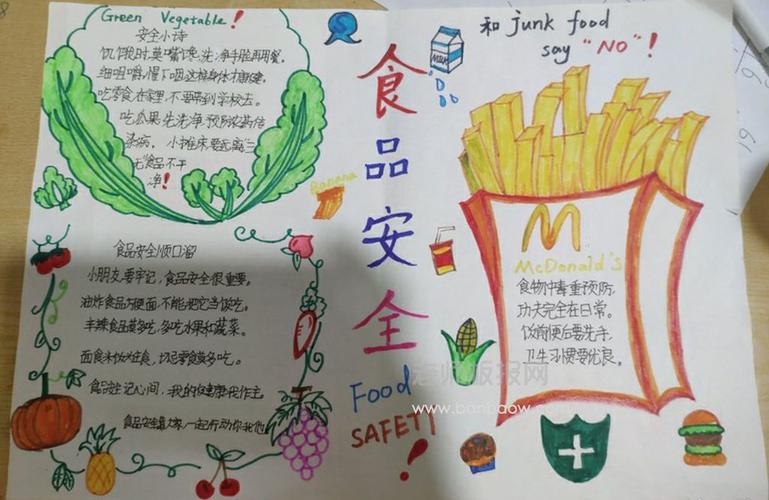 Green Vegetable!
安全小诗
饥饿时,莫嘴馋,洗净手脸再用餐。
细咀嚼,慢下咽,这样身体才康健。
吃零食,在家里,不要带到学校去。
吃瓜果,先洗净,预防农药传
染病。小摊床要远离,三
无食品不干
净!
食品安全顺口溜
小朋友,要牢记,食品安全很重要。
油炸食品方便面,不能把它当饭吃。
辛辣食品莫多吃,多吃水果和蔬菜。
面食米饭为主食,切忌零食莫多吃。
食品安全记心间,我的健康我作主。
食品安全靠大家,一起行动你我他
Banana
食品安全
Food
SAFETY
!
MILK
和 junk food
say "NO"!
M
McDonald's
食物中毒重预防,
功夫完全在日常。
饭前便后要洗手,
卫生习惯要优良。
老师版报网
www.banbaow.com